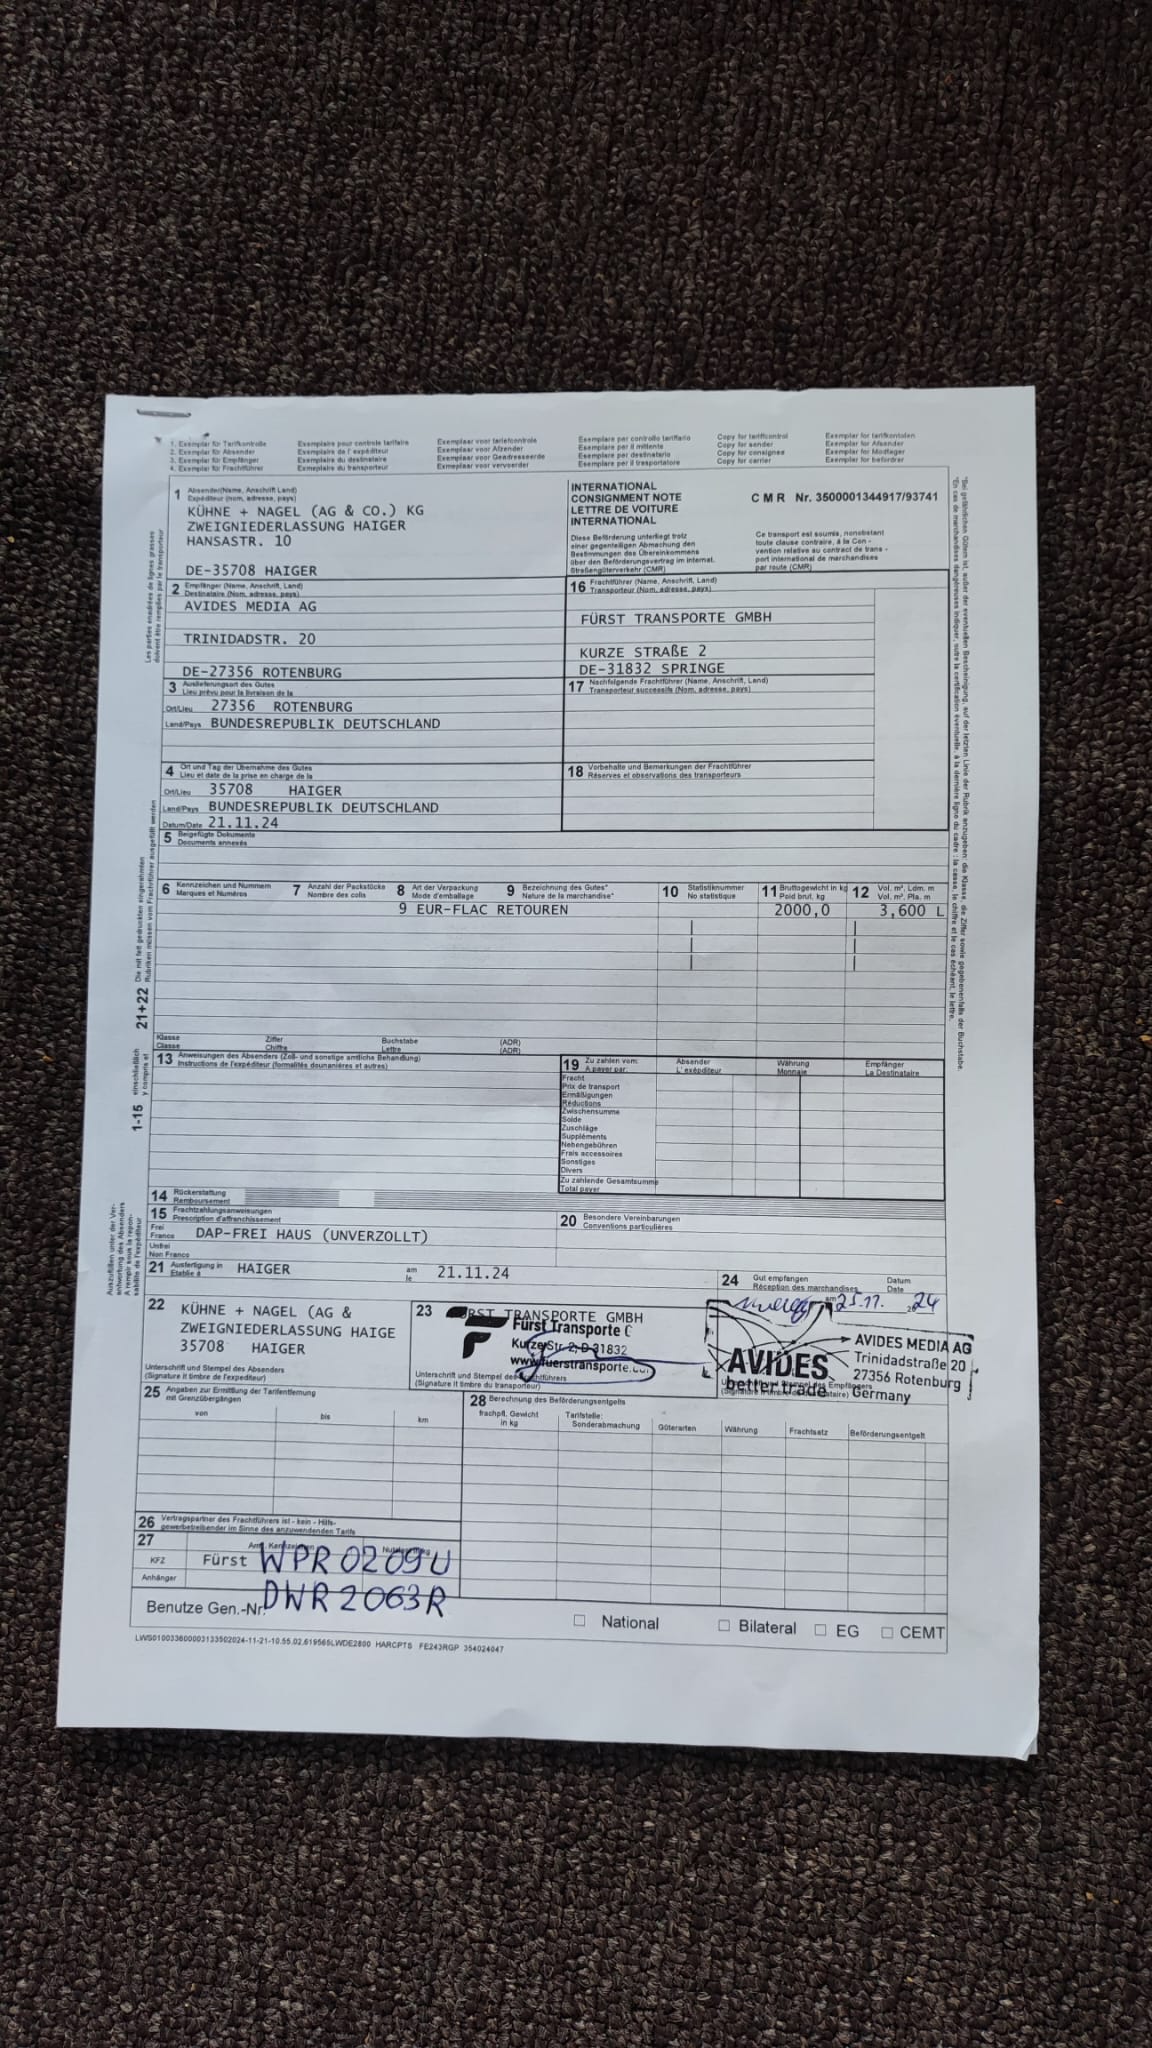 1. Exemplar für Tarifkontrolle Exemplaire pour controle tarifaire Exemplaar voor tariefcontrole Esemplare per controllo tariffario Copy for tariffcontrol Exemplar for tarifkontolen
2. Exemplar für Absender Exemplaire de l' expéditeur Exemplaar voor Afzender Esemplare per il mittente Copy for sender Exemplar for Afsender
3. Exemplar für Empfänger Exemplaire du destinataire Exemplaar voor Geadresseerde Esemplare per destinatario Copy for consignee Exemplar for Modtager
4. Exemplar für Frachtführer Exmeplaire du transporteur Exmeplaar voor vervoerder Esemplare per il trasportatore Copy for carrier Exemplar for befordrer
1 Absender(Name, Anschrift Land)
Expéditeur (nom, adresse, pays)
KÜHNE + NAGEL (AG & CO.) KG
ZWEIGNIEDERLASSUNG HAIGER
HANSASTR. 10
DE-35708 HAIGER
INTERNATIONAL
CONSIGNMENT NOTE
LETTRE DE VOITURE
INTERNATIONAL
C M R Nr. 3500001344917/93741
Diese Beförderung unterliegt trotz
einer gegenteiligen Abmachung den
Bestimmungen des Übereinkommens
über den Beförderungsvertrag im internat.
Straßengüterverkehr (CMR)
Ce transport est soumis, nonobstant
toute clause contraire, à la Con -
vention relative au contract de trans -
port international de marchandises
par route (CMR)
2 Empfänger (Name, Anschrift, Land)
Destinataire (Nom, adresse, pays)
AVIDES MEDIA AG
TRINIDADSTR. 20
DE-27356 ROTENBURG
16 Frachtführer (Name, Anschrift, Land)
Transporteur (Nom, adresse, pays)
FÜRST TRANSPORTE GMBH
KURZE STRAßE 2
DE-31832 SPRINGE
3 Auslieferungsort des Gutes
Lieu prévu pour la livraison de la
Ort/Lieu 27356 ROTENBURG
Land/Pays BUNDESREPUBLIK DEUTSCHLAND
17 Nachfolgende Frachtführer (Name, Anschrift, Land)
Transporteur successifs (Nom, adresse, pays)
4 Ort und Tag der Übernahme des Gutes
Lieu et date de la prise en charge de la
Ort/Lieu 35708 HAIGER
Land/Pays BUNDESREPUBLIK DEUTSCHLAND
Datum/Date 21.11.24
18 Vorbehalte und Bemerkungen der Frachtführer
Réserves et observations des transporteurs
5 Beigefügte Dokumente
Documents annexés
6 Kennzeichen und Nummern 7 Anzahl der Packstücke 8 Art der Verpackung 9 Bezeichnung des Gutes* 10 Statistiknummer 11 Bruttogewicht in kg 12 Vol. m³, Ldm. m
Marques et Numéros Nombre des colis Mode d'emballage Nature de la marchandise* No statistique Poid brut. kg Vol. m³, Pla. m
9 EUR-FLAC RETOUREN 2000,0 3,600 L
Klasse Ziffer Buchstabe (ADR)
Classe Chiffre Lettre (ADR)
13 Anweisungen des Absenders (Zoll- und sonstige amtliche Behandlung)
Instructions de l'expéditeur (formalités douanières et autres)
19 Zu zahlen vom: Absender Währung Empfänger
A payer par: L' expéditeur Monnaie La Destinataire
Fracht
Prix de transport
Ermäßigungen
Réductions
Zwischensumme
Solde
Zuschläge
Suppléments
Nebengebühren
Frais accessoires
Sonstiges
Divers
Zu zahlende Gesamtsumme
Total payer
14 Rückerstattung
Remboursement
15 Frachtzahlungsanweisungen
Prescription d'affranchissement
Frei
Franco DAP-FREI HAUS (UNVERZOLLT)
Unfrei
Non Franco
20 Besondere Vereinbarungen
Conventions particulières
21 Ausfertigung in HAIGER am 21.11.24
Etablie à le
24 Gut empfangen Datum
Réception des marchandises Date
am 25.11. 2024
22 KÜHNE + NAGEL (AG &
ZWEIGNIEDERLASSUNG HAIGE
35708 HAIGER
Unterschrift und Stempel des Absenders
(Signature It timbre de l'expediteur)
23 RST TRANSPORTE GMBH
Fürst Transporte
Kurze Str. 2, D 31832
www.fuerstransporte.
Unterschrift und Stempel des Frachtführers
(Signature It timbre du transporteur)
AVIDES
better trade
AVIDES MEDIA AG
Trinidadstraße 20
27356 Rotenburg
Germany
25 Angaben zur Ermittlung der Tarifentfernung
mit Grenzübergängen
von bis km
28 Berechnung des Beförderungsentgelts
frachpfl. Gewicht Tarifstelle:
in kg Sonderabmachung Güterarten Währung Frachtsatz Beförderungsentgelt
26 Vertragspartner des Frachtführers ist - kein - Hilfs-
gewerbetreibender im Sinne des anzuwendenden Tarifs
27 Amtl. Kennzeichen
KFZ Fürst WPR 0209U
Anhänger DWR 2063R
Benutze Gen.-Nr.
National Bilateral EG CEMT
LWS0100336000031335020​24-11-21-10.55.02.619565LWDE2800 HARCPTS FE243RGP 354024047
21+22 Die mit fett gedruckten eingerahmten
Rubriken müssen vom Frachtführer ausgefüllt werden
1-15 einschließlich
y compris et
Les parties encadrées de lignes grasses
doivent être remplies par le transporteur
Auszufüllen unter der Ver-
antwortung des Absenders
A remplir sous la respon-
sabilité de l'expéditeur